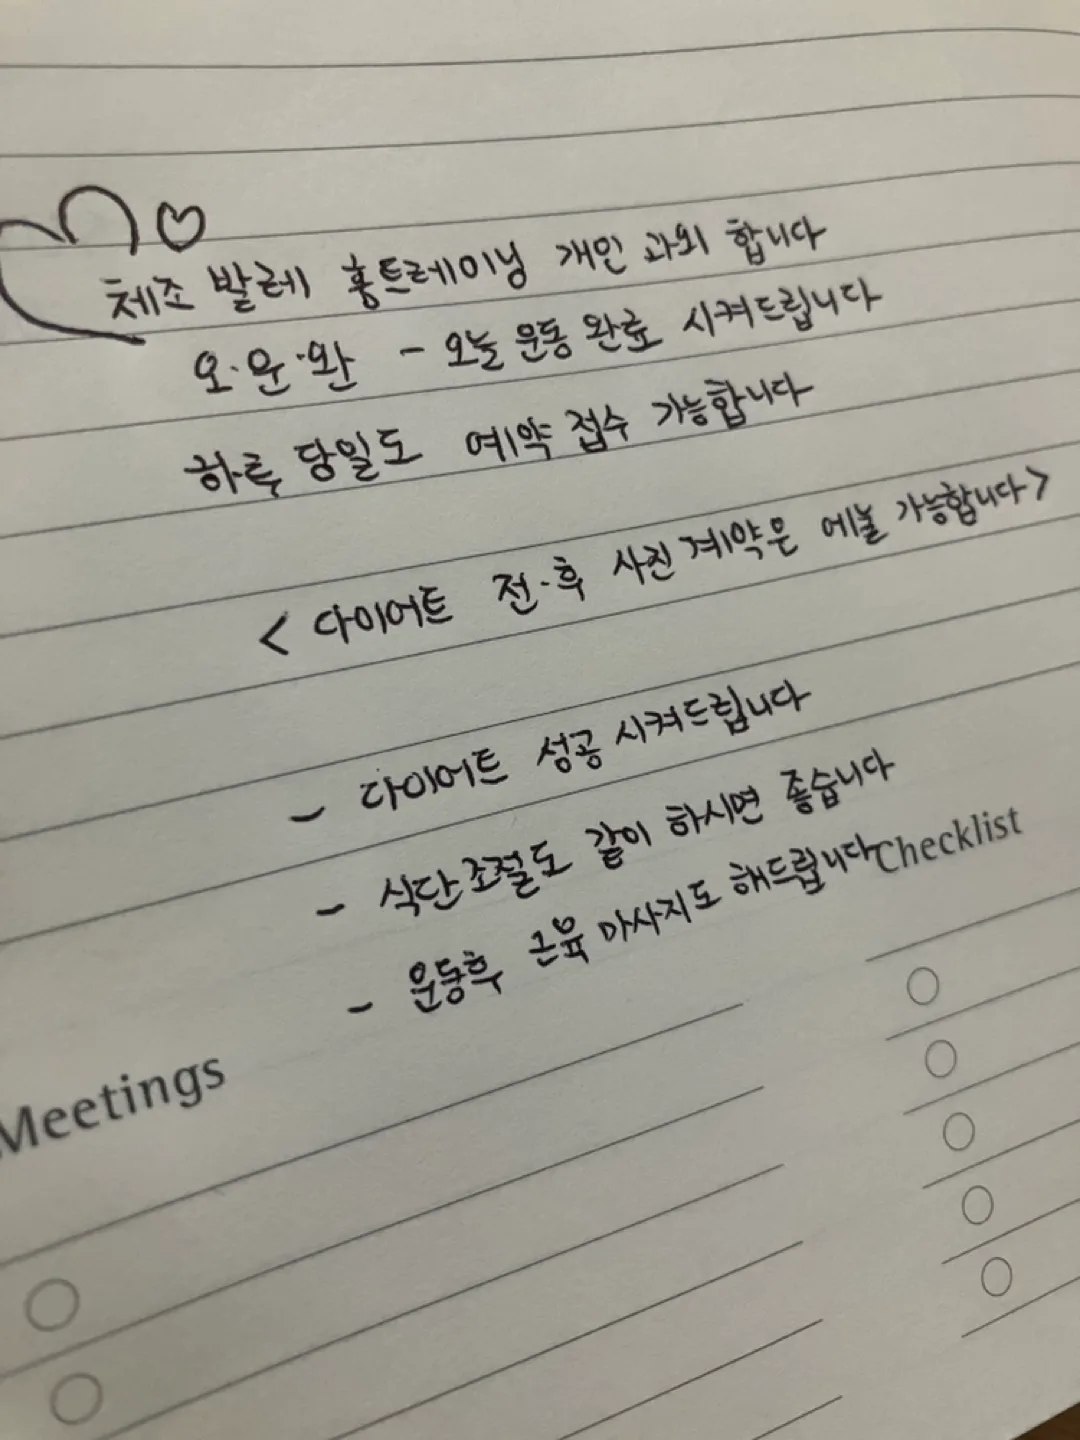 체조 발레 홈트레이닝 개인 과외 합니다
오·운·완 - 오늘 운동 완료 시켜드립니다
하루 당일도 예약 접수 가능합니다
< 다이어트 전·후 사진 계약은 에눌 가능합니다>
- 다이어트 성공 시켜드립니다
- 식단조절도 같이 하시면 좋습니다
- 운동후 근육 마사지도 해드립니다
Checklist
Meetings